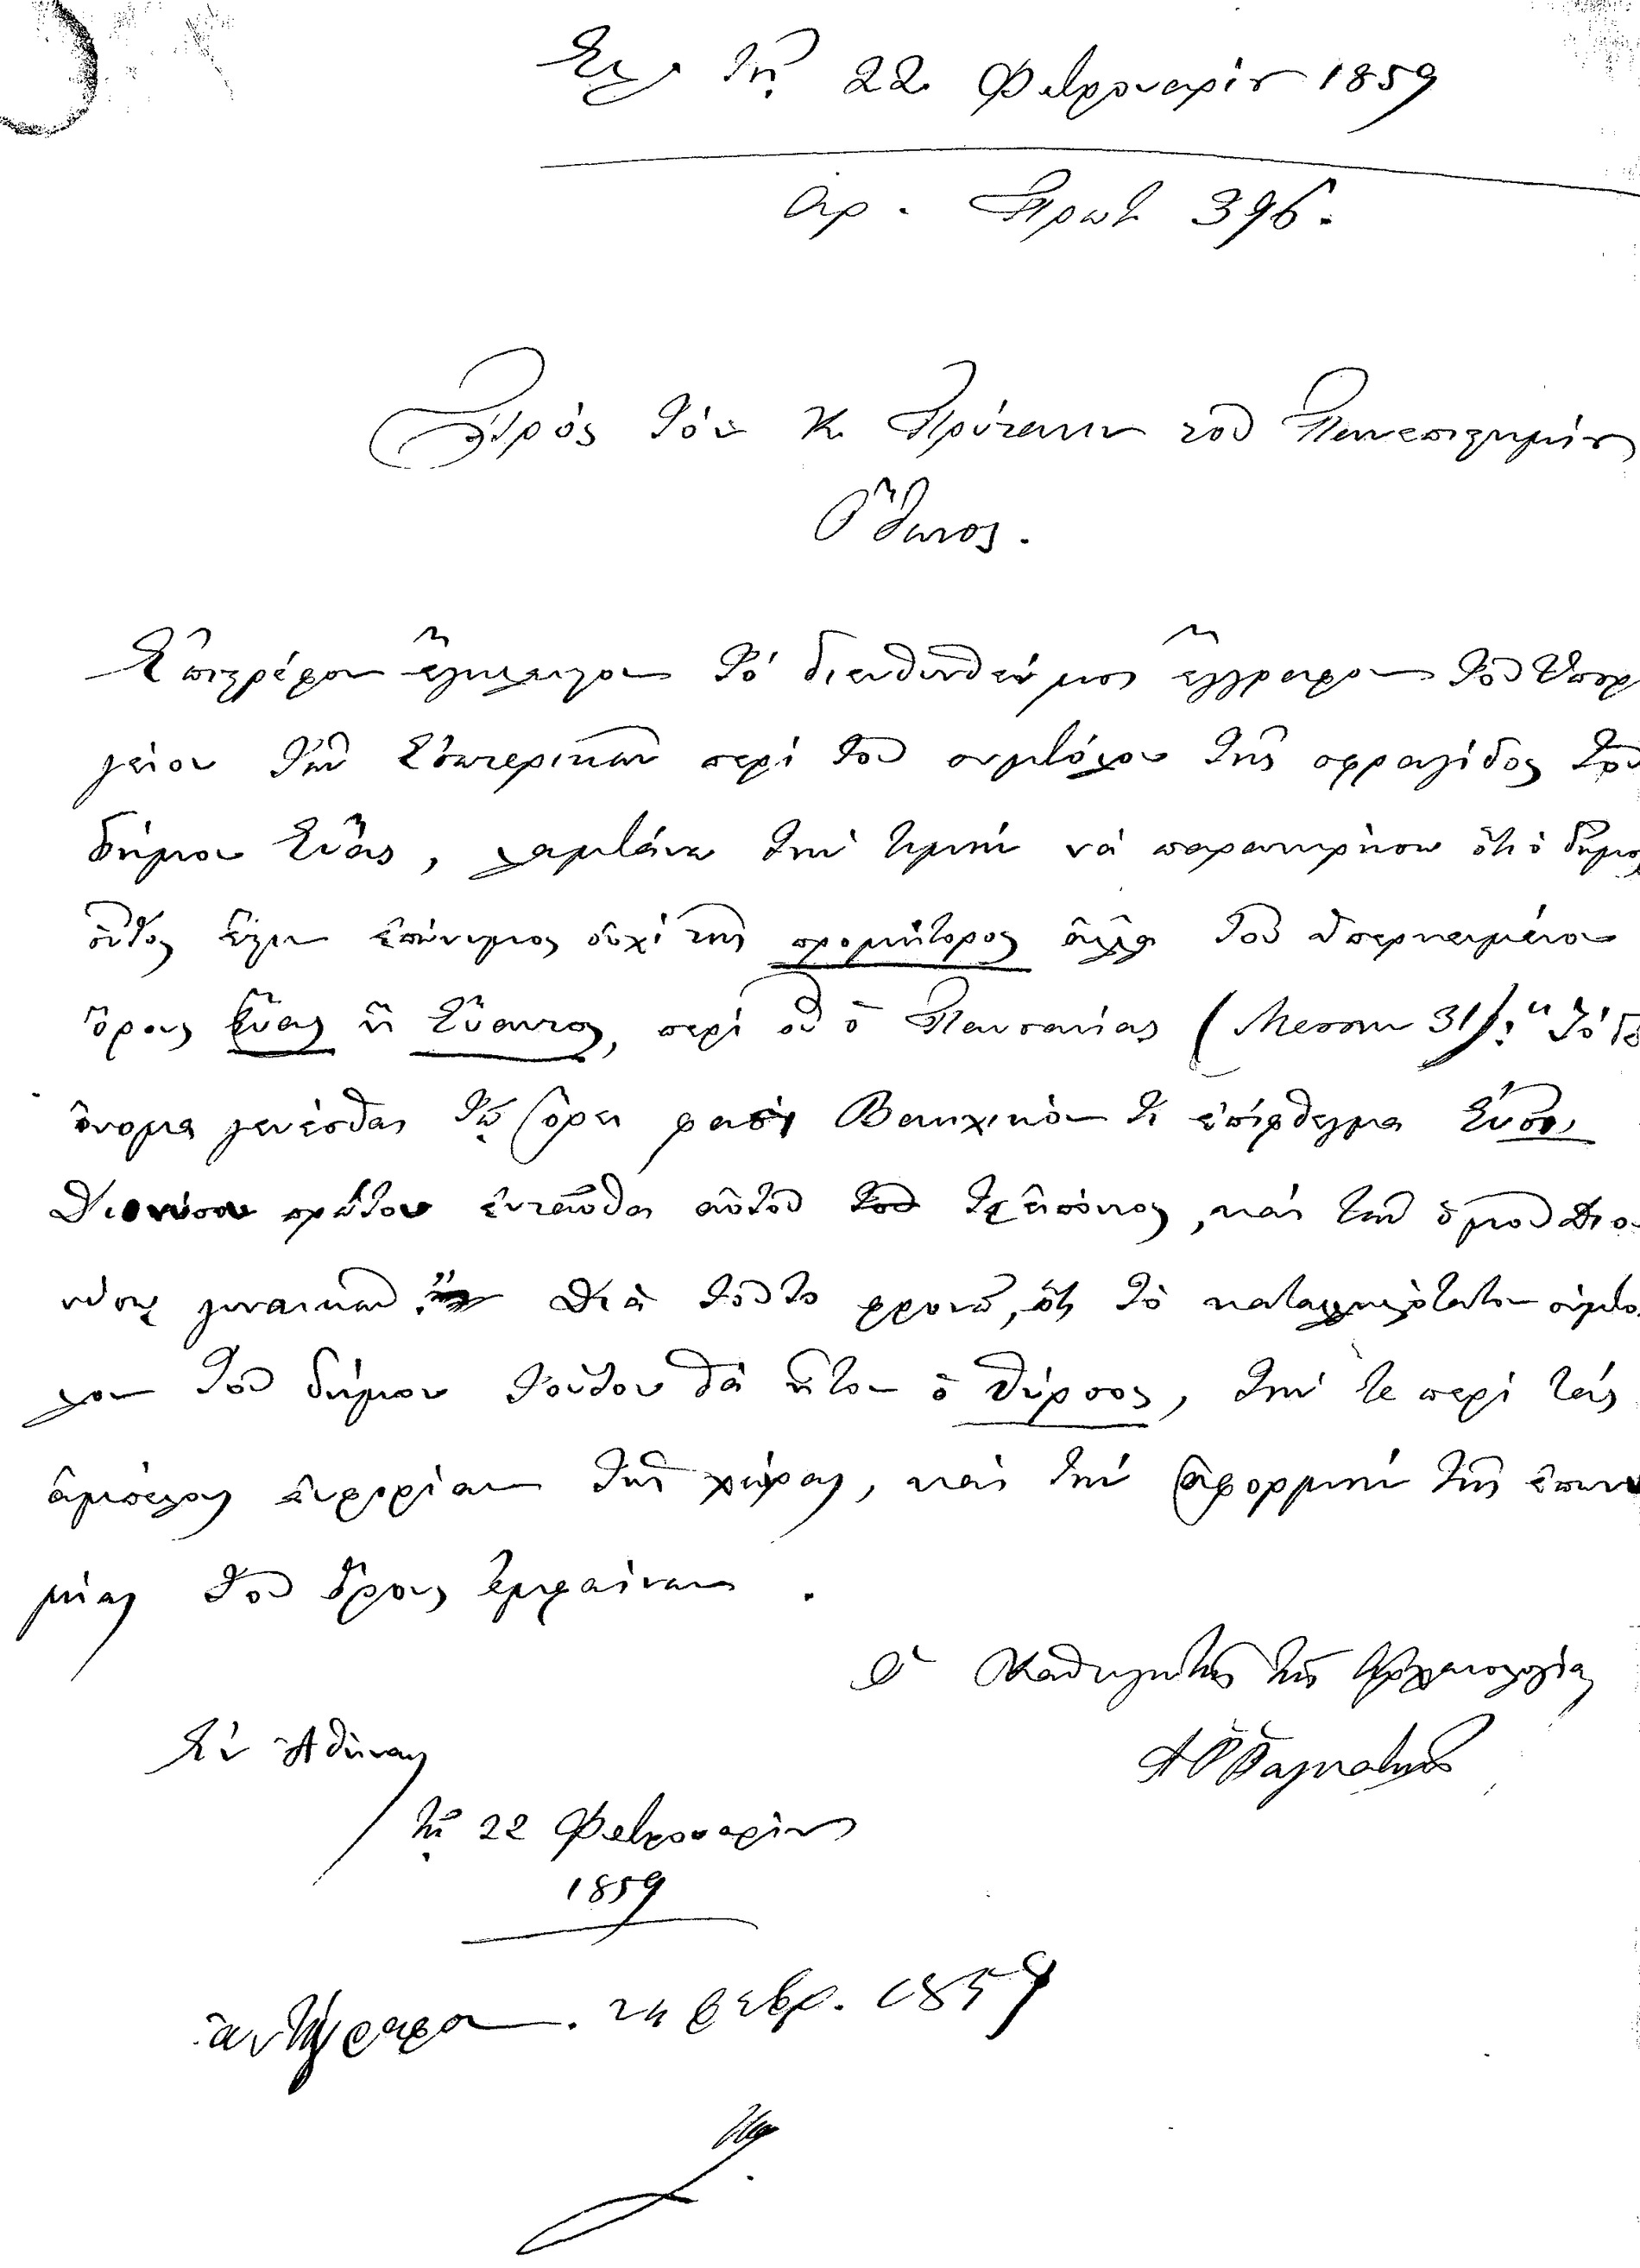 Ἐλ. τῇ 22 Φεβρουαρίου 1859
Ἀρ. Πρωτ. 396.
Πρὸς τὸν κ. Πρύτανιν τοῦ Πανεπιστημίου
Ὄθωνος.
Ἐπιστρέφων ἔγκλειστον τὸ διευθυνθέν μοι ἔγγραφον τοῦ Ὑπουρ
γείου τῶν Ἐσωτερικῶν περὶ τοῦ συμβόλου τῆς σφραγίδος τοῦ
δήμου Εὔας, λαμβάνω τὴν τιμὴν νὰ παρατηρήσω ὅτι ὁ δῆμος
οὗτος εἶναι ἐπώνυμος οὐχὶ τῆς προμήτορος ἀλλὰ τοῦ ὑπερκειμένου
ὄρους Εὔας ἢ Εὔαντος, περὶ οὗ ὁ Παυσανίας (Μεσσην 31): "Τὸ δὲ
ὄνομα γενέσθαι τῷ ὄρει φασὶ Βακχικόν τι ἐπίφθεγμα Εὐοῖ,
Διονύσου πρῶτον ἐνταῦθα αὐτοῦ τε εἰπόντος, καὶ τῶν ὁμοῦ Διο-
νύσῳ γυναικῶν." Διὰ τοῦτο φρονῶ, ὅτι τὸ καταλληλότατον σύμβο
λον τοῦ δήμου τούτου θὰ ἦτον ὁ θύρσος, τήν τε περὶ τὰς
ἀμπέλους εὐφορίαν τῆς χώρας, καὶ τὴν ἀφορμὴν τῆς ἐπωνυ
μίας τοῦ ὄρους ἐμφαίνων.
Ὁ Καθηγητὴς τῆς Ἀρχαιολογίας
Α Ρ Ραγκαβῆς
Ἐν Ἀθήναις
τῇ 22 Φεβρουαρίου
1859
ἀντίγραφον. 24 φεβρ. 1859